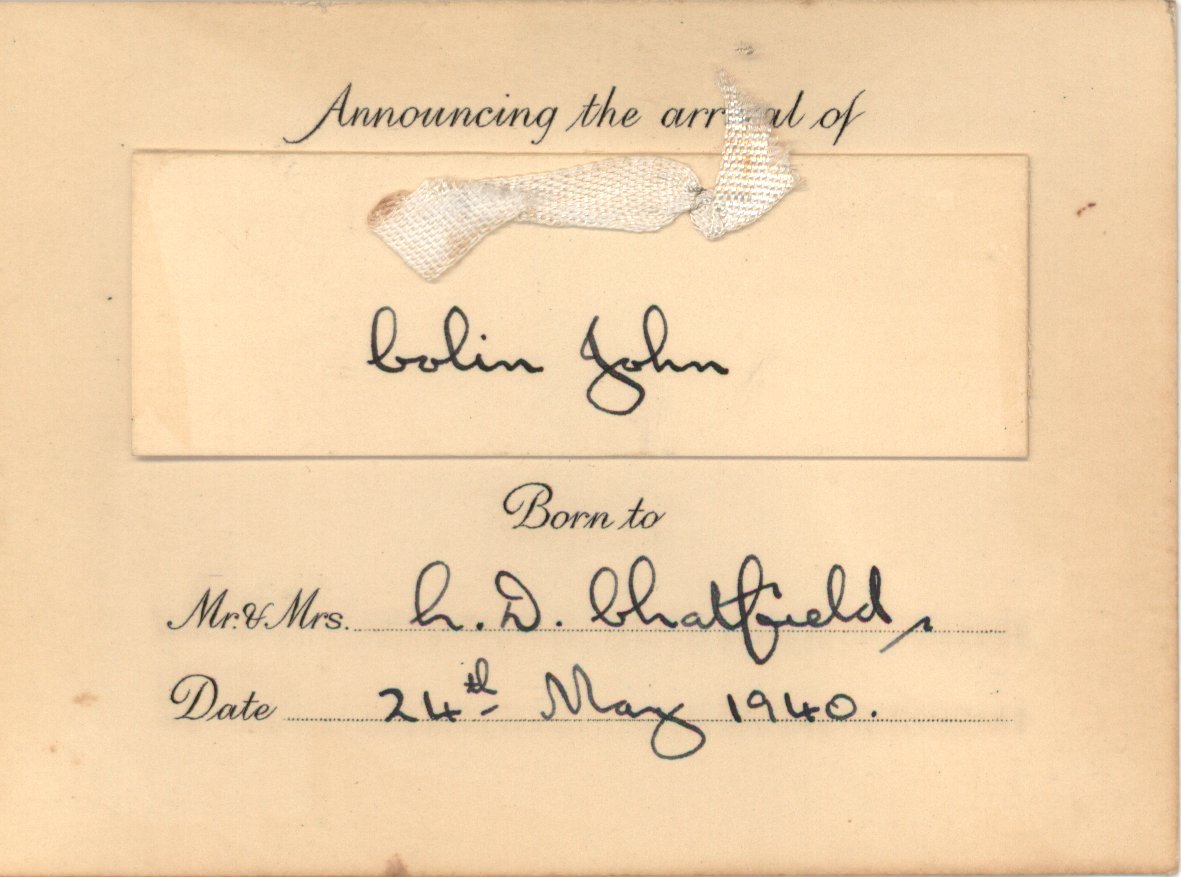 Announcing the arrival of
Colin John
Born to
Mr. & Mrs. h. D. Chatfield,
Date 24th May 1940.